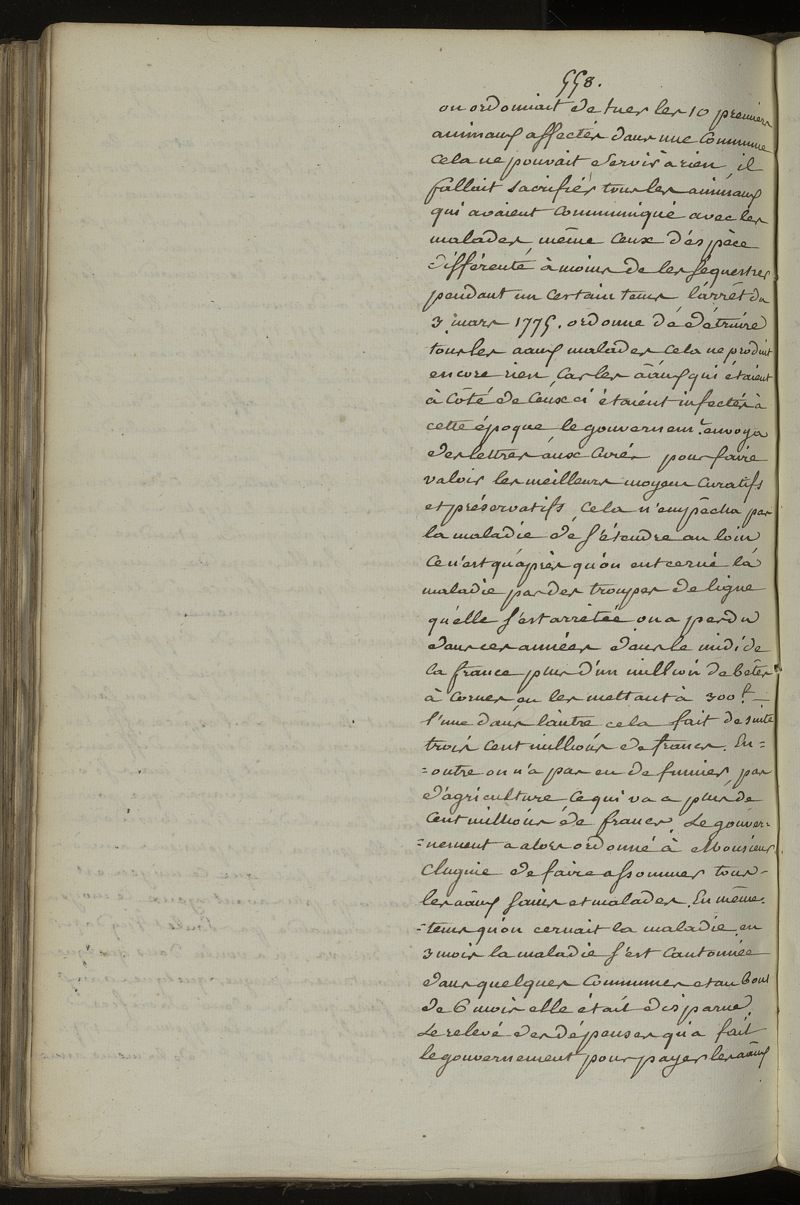 558.
on ordonnait de tuer les 10 premiers
animaux affectés dans une commune
cela ne pouvait servir à rien, il
fallait sacrifier tous les animaux
qui avaient communiqué avec les
malades, même ceux d'éspèce
différente à moins de les séquestrer
pendant un certain tems l'arrêt du
3 mars 1775. ordonne dé détruire
tous les aaux malades cela ne produit
encore rien, car les aâux qui étaient
à côté de ceux ci étaient infectés à
cette époque le gouvernemt. envoya
des lettres aux curés pour faire
valoir les meilleurs moyens curatifs
et préservatifs, cela n'empêcha pas
la maladie dé s'étendre au loin
ce n'est qu'après qu'on eut cerné la
maladie par des troupes de ligne
qu'elle s'est arrêtée on a perdu
dans ces années dans le midi de
la france plus d'un million de bêtes
à cornes en les mettant à 300f. —
l'une dans l'autre cela fait de suite
trois cent millions de francs. En=
=outre on n'a pas eu de fumier, pas
d'agriculture ce qui va a plus de
cent millions de francs. Le gouver=
=nement a alors ordonné à Monsieur
Clugnie de faire assommer tous-
les aâux sains et malades. En même.
=tems qu'on cernait la maladie en
3 mois la maladie s'est cantonnée
dans quelques communes et au bout
de 6 mois elle était disparue.
Le relevé des dépenses qu'a fait
le gouvernement pour payer les aâux